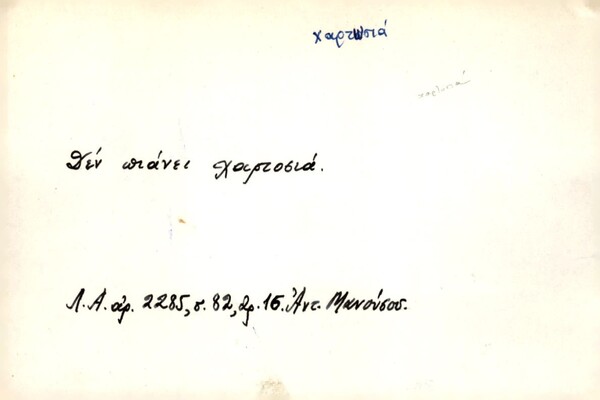 χαρτωσιά
χαρτωσιά
Δέν πιάνει χαρτοσιά.
Λ.Α. ἀρ. 2285, σ. 82, ἀρ. 16. Ἀντ. Μανούσος.